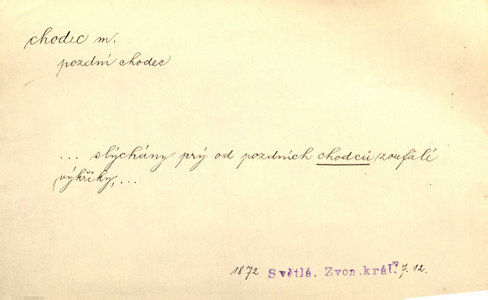 chodec m.
pozdní chodec
... slýchány prý od pozdních chodců zoufalé
výkřiky, ...
1872 Světlá. Zvon. král. 7. 12.